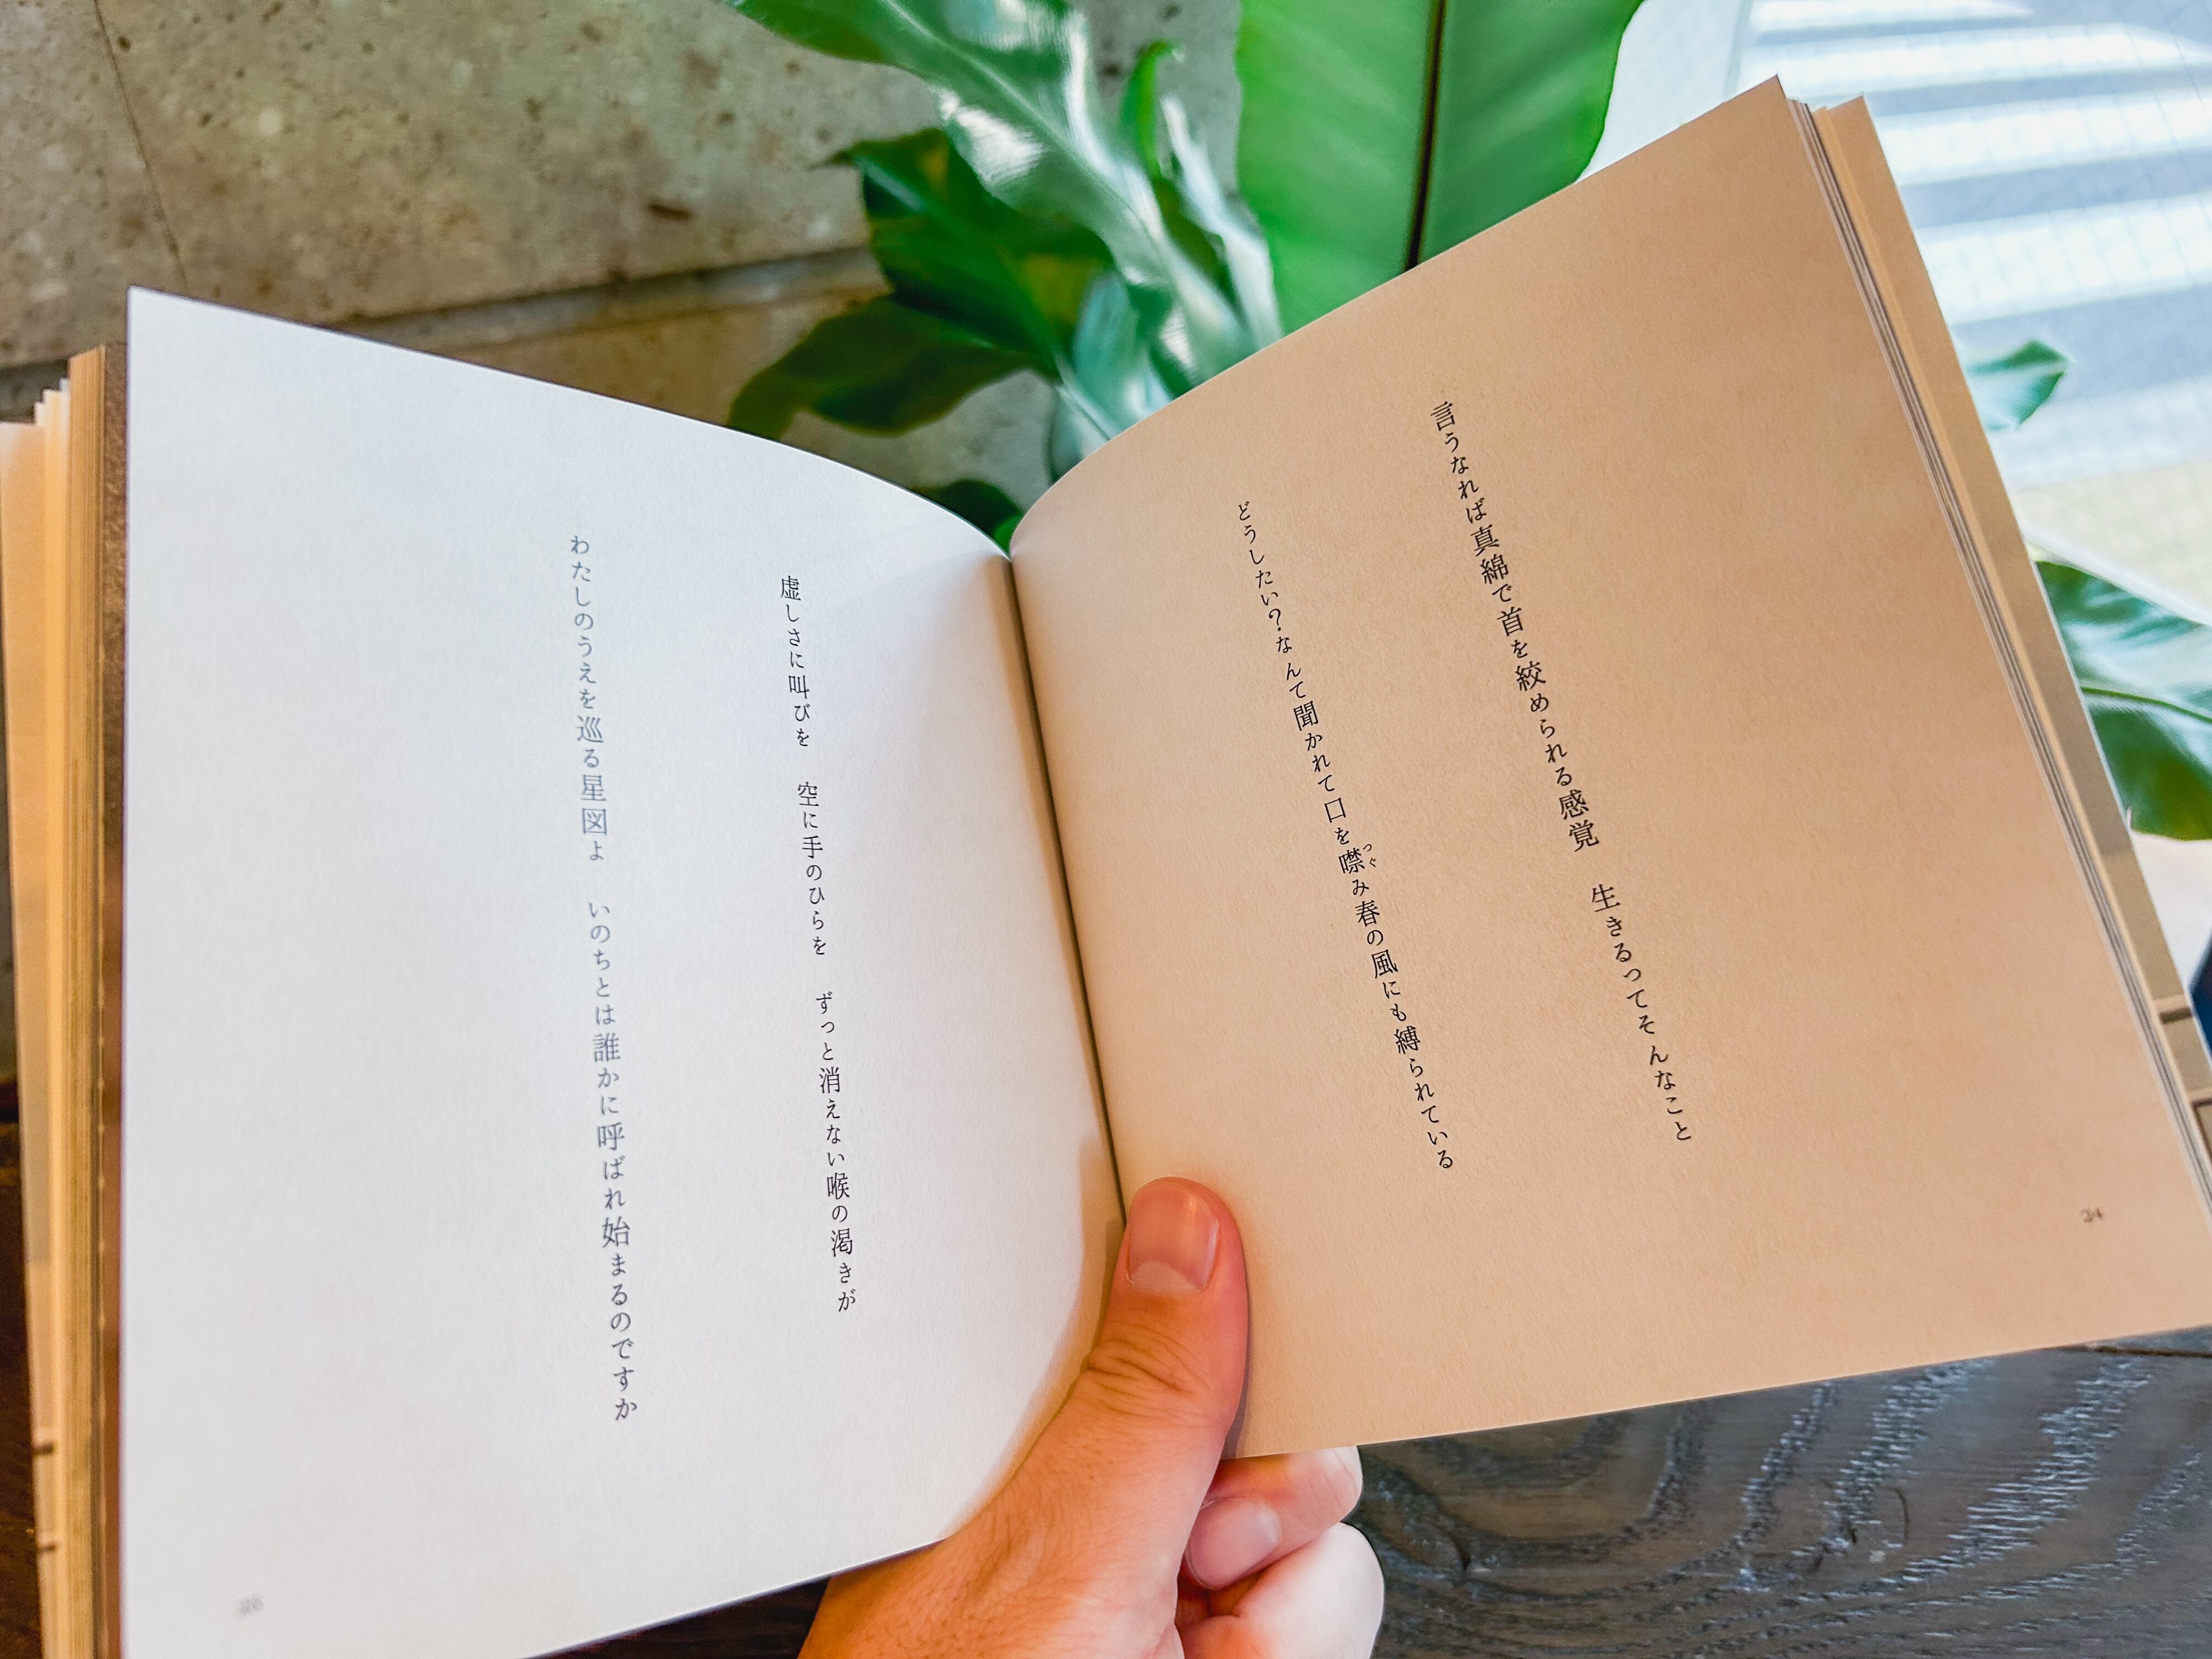 言うなれば真綿で首を絞められる感覚　生きるってそんなこと
どうしたい？なんて聞かれて口を噤み春の風にも縛られている
つぐ
24
虚しさに叫びを　空に手のひらを　ずっと消えない喉の渇きが
わたしのうえを巡る星図よ　いのちとは誰かに呼ばれ始まるのですか